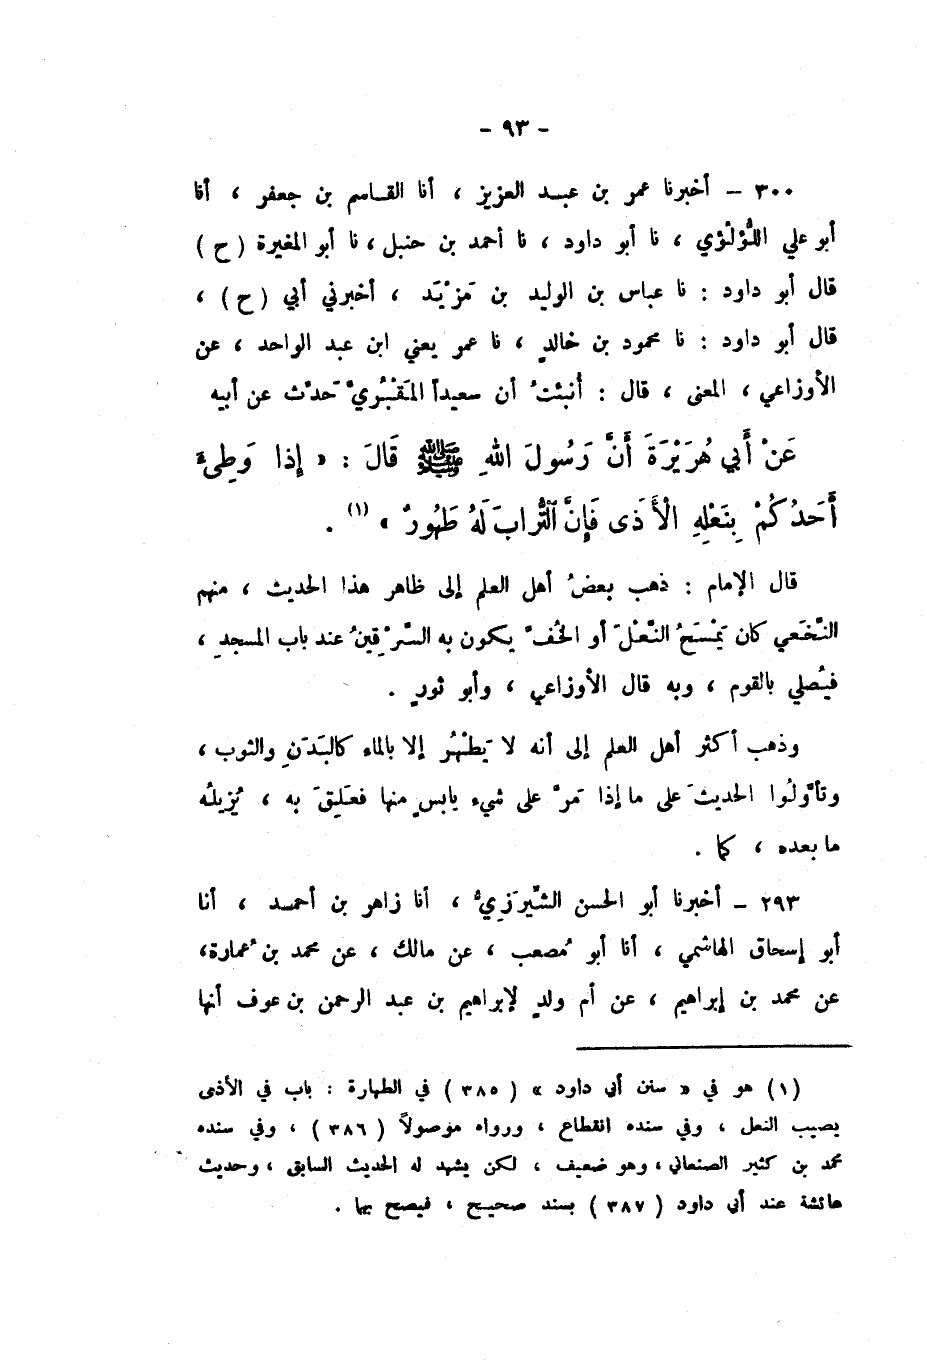 - ٩٣ -
٣٠٠ – أخبرنا عمر بن عبـد العزيز ، أنا القـاسم بن جعفر ، أنا
أبو علي اللُّؤلُؤي ، نا أبو داود ، نا أحمد بن حنبل ، نا أبو المغيرة ( ح )
قال أبو داود : نا عباس بن الوليد بن مَزْيَد ، أخبرني أبي ( ح ) ،
قال أبو داود : نا محمود بن خالدٍ ، نا عمر يعني ابن عبد الواحد ، عن
الأوزاعي ، المعنى ، قال : أُنبئتُ أن سعيداً المَقْبُريَّ حَدَّث عن أبيه
عَنْ أَبي هُرَيْرَةَ أَنَّ رَسُولَ اللهِ ﷺ قَالَ : « إذا وَطِىءَ
أَحَدُكُمْ بِنَعْلِهِ الْأَذَى فَإِنَّ التُّرابَ لَهُ طَهُورٌ » (١) .
قال الإمام : ذهب بعضُ أهل العلم إلى ظاهر هذا الحديث ، منهم
النَّخَعي كان يَمْسَحُ النَّعْلَ أو الخُفَّ يكون به السِّرْقِينُ عند باب المسجدِ ،
فيُصلي بالقوم ، وبه قال الأوزاعي ، وأبو ثورٍ .
وذهب أكثر أهل العلم إلى أنه لا يَطْهُر إلا بالماء كالبَدَنِ والثوب ،
وتأوَّلُوا الحديثَ على ما إذا مَرَّ على شيء يابسٍ منها فعَلِقَ به ، يُزيلُه
ما بعده ، كما .
٢٩٣ – أخبرنا أبو الحسن الشَّيرَزيُّ ، أنا زاهر بن أحمـد ، أنا
أبو إسحاق الهاشمي ، أنا أبو مُصعب ، عن مالك ، عن محمد بن عُمارة،
عن محمد بن إبراهيم ، عن أم ولدٍ لإبراهيم بن عبد الرحمن بن عوف أنها
(١) هو في « سنن أبي داود » ( ٣٨٥ ) في الطهارة : باب في الأذى
يصيب النعل ، وفي سنده انقطاع ، ورواه موصولاً ( ٣٨٦ ) ، وفي سنده
محمد بن كثير الصنعاني ، وهو ضعيف ، لكن يشهد له الحديث السابق ، وحديث
عائشة عند أبي داود ( ٣٨٧ ) بسند صحيح ، فيصح بها .